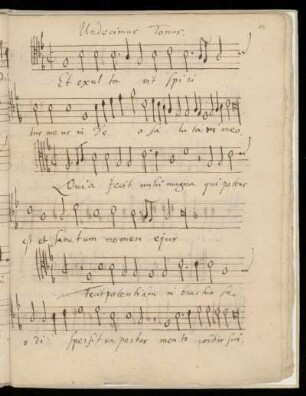 Undecimus Tonus.
Et exul ta vit spiri
tus meus in De o sa lu ta ri meo
Quia fecit mihi magna qui potens
est et sanctum nomen ejus
Fecit potentiam in brachio su
o di spersit superbos mente cordis sui.